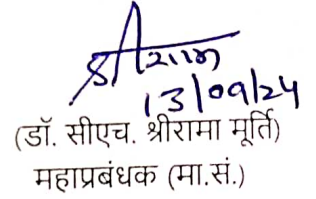 श्रीराम
13/09/24
(डॉ. सीएच. श्रीरामा मूर्ति)
महाप्रबंधक (मा.सं.)